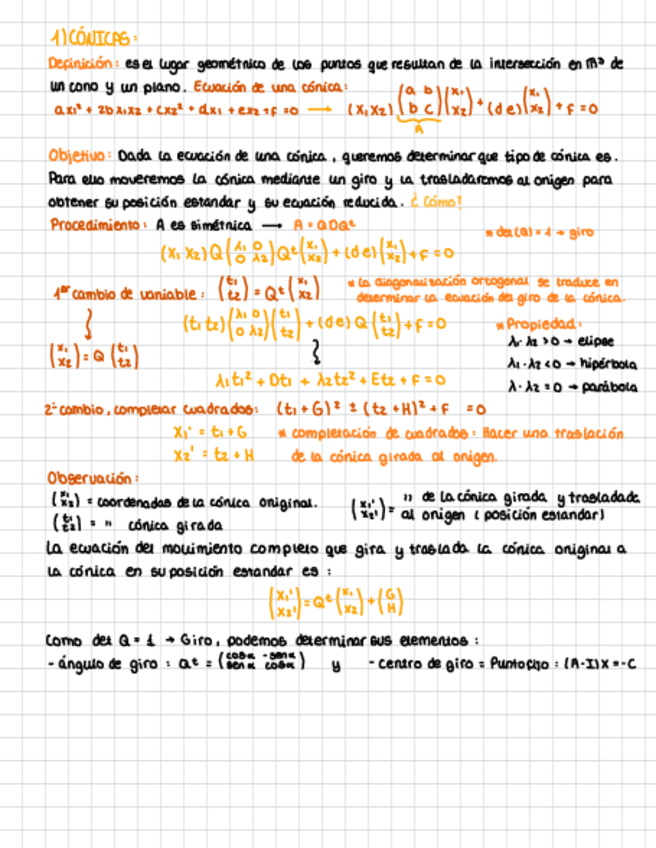 1) CÓNICAS:
Definición: es el lugar geométrico de los puntos que resultan de la intersección en ℝ³ de
un cono y un plano. Ecuación de una cónica:
ax₁² + 2bx₁x₂ + cx₂² + dx₁ + ex₂ + f = 0 → (x₁ x₂) (a b / b c) (x₁ / x₂) + (d e) (x₁ / x₂) + f = 0
A
Objetivo: Dada la ecuación de una cónica, queremos determinar que tipo de cónica es.
Para ello moveremos la cónica mediante un giro y la trasladaremos al origen para
obtener su posición estandar y su ecuación reducida. ¿Cómo?
Procedimiento: A es simétrica → A = QDQᵗ
* det(Q) = 1 → giro
(x₁ x₂) Q (λ₁ 0 / 0 λ₂) Qᵗ (x₁ / x₂) + (d e) (x₁ / x₂) + f = 0
1ᵉʳ cambio de variable: (t₁ / t₂) = Qᵗ (x₁ / x₂)
* la diagonalización ortogonal se traduce en
determinar la ecuación del giro de la cónica.
(t₁ t₂) (λ₁ 0 / 0 λ₂) (t₁ / t₂) + (d e) Q (t₁ / t₂) + f = 0
* Propiedad:
λ₁·λ₂ > 0 → elipse
(x₁ / x₂) = Q (t₁ / t₂)
λ₁·λ₂ < 0 → hipérbola
λ₁t₁² + Dt₁ + λ₂t₂² + Et₂ + F = 0
λ·λ₂ = 0 → parábola
2º cambio, completar cuadrados: (t₁ + G)² ± (t₂ + H)² + F = 0
x₁' = t₁ + G * completación de cuadrados: Hacer una traslación
x₂' = t₂ + H de la cónica girada al origen.
Observación:
(x₁ / x₂) = coordenadas de la cónica original.
(x₁' / x₂') = " de la cónica girada y trasladada
al origen (posición estandar)
(t₁ / t₂) = " cónica girada
La ecuación del movimiento completo que gira y traslada la cónica original a
la cónica en su posición estandar es:
(x₁' / x₂') = Qᵗ (x₁ / x₂) + (G / H)
Como det Q = 1 → Giro, podemos determinar sus elementos:
- ángulo de giro: Qᵗ = (cosα -senα / senα cosα) y - centro de giro = Punto fijo: (A-I)X = -C